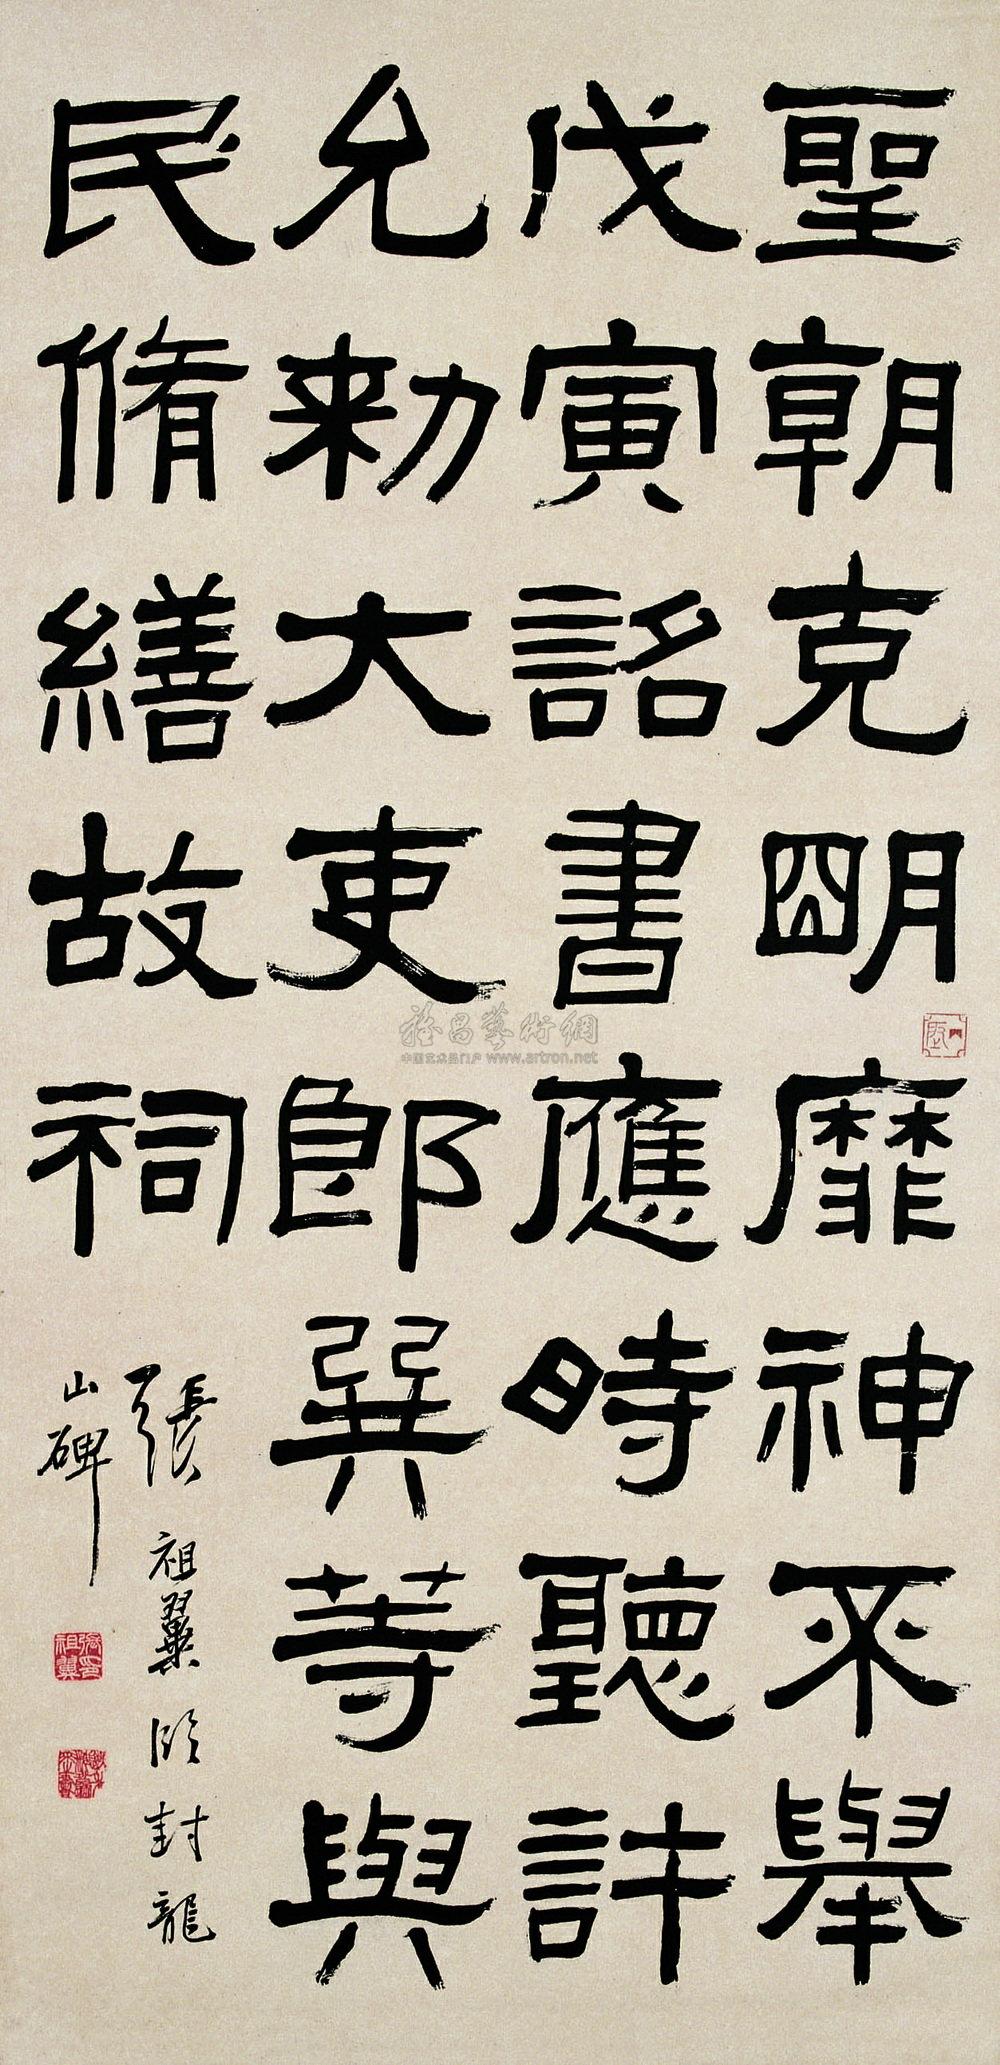 聖朝克明靡神不舉
戊寅詔書應時聽許
允勑大吏郎巽等與
民脩繕故祠
張祖翼臨封龍
山碑
張祖翼印
雅昌藝術網
中国艺术品门户 www.artron.net